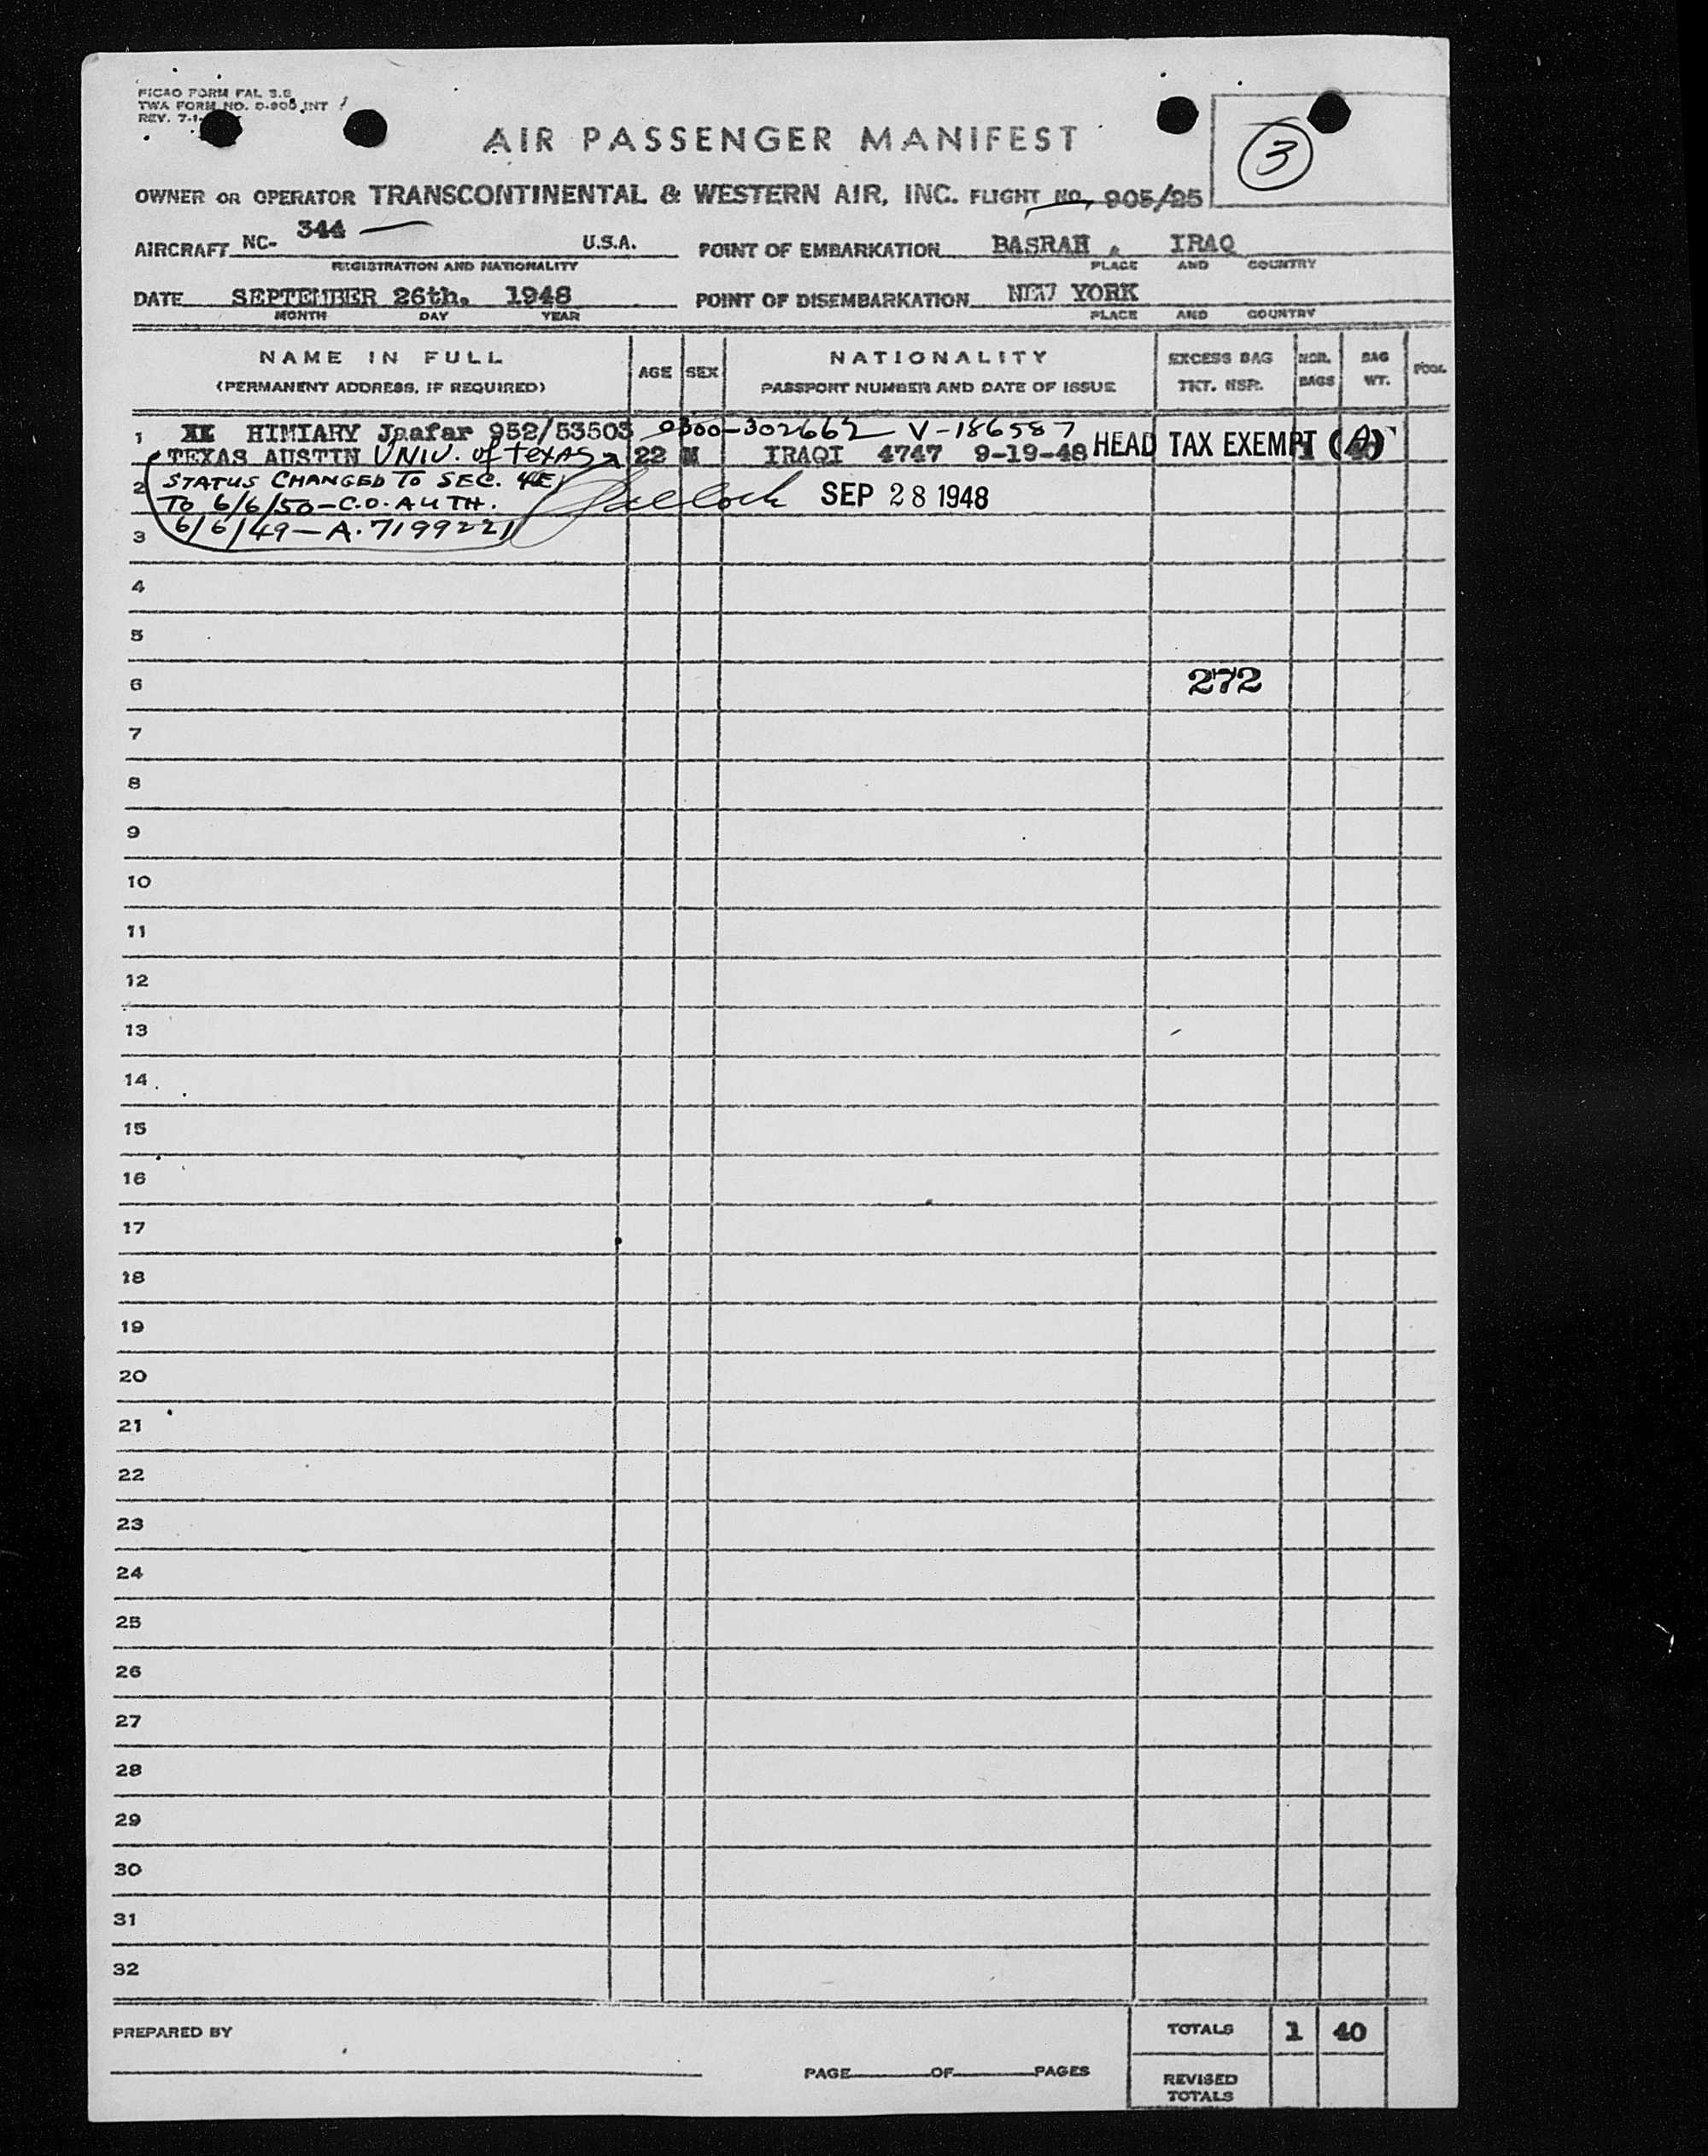 PICAO FORM FAL 3.6
TWA FORM NO. D-806 INT
REV. 7-1-
AIR PASSENGER MANIFEST
3
OWNER OR OPERATOR TRANSCONTINENTAL & WESTERN AIR, INC. FLIGHT NO. 905/25
AIRCRAFT NC- 344 U.S.A. POINT OF EMBARKATION BASRAH , IRAQ
REGISTRATION AND NATIONALITY PLACE AND COUNTRY
DATE SEPTEMBER 26th. 1948 POINT OF DISEMBARKATION NEW YORK
MONTH DAY YEAR PLACE AND COUNTRY
NAME IN FULL AGE SEX NATIONALITY EXCESS BAG NBR. BAG POOL
(PERMANENT ADDRESS, IF REQUIRED) PASSPORT NUMBER AND DATE OF ISSUE TKT. NBR. BAGS WT.
1 HIMIARY Jaafar 952/53503 0300-302662 V-186587
TEXAS AUSTIN UNIV. of TEXAS 22 M IRAQI 4747 9-19-48 HEAD TAX EXEMPT 1 40
2 STATUS CHANGED TO SEC. 4E SEP 28 1948
TO 6/6/50-C.O. AUTH.
3 6/6/49-A.7199221
4
5
6 272
7
8
9
10
11
12
13
14
15
16
17
18
19
20
21
22
23
24
25
26
27
28
29
30
31
32
PREPARED BY TOTALS 1 40
PAGE OF PAGES REVISED
TOTALS